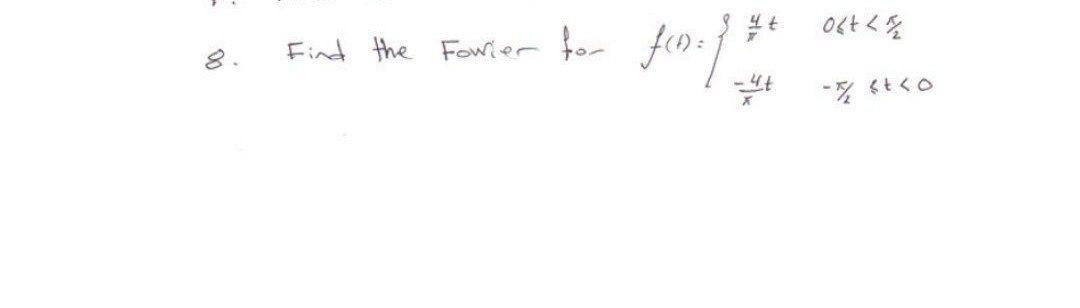 8. Find the Fowier for f(t) = { 4/π t 0≤t<π/2
-4t/π -π/2 ≤t<0